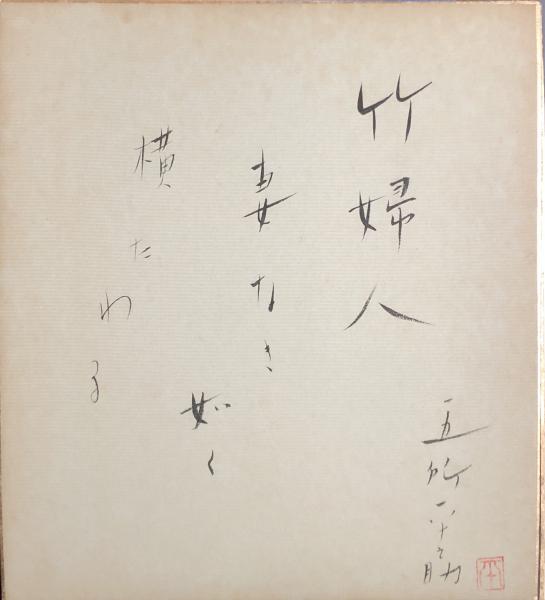 竹婦人
妻なき
如く
横たわる
五所平之助